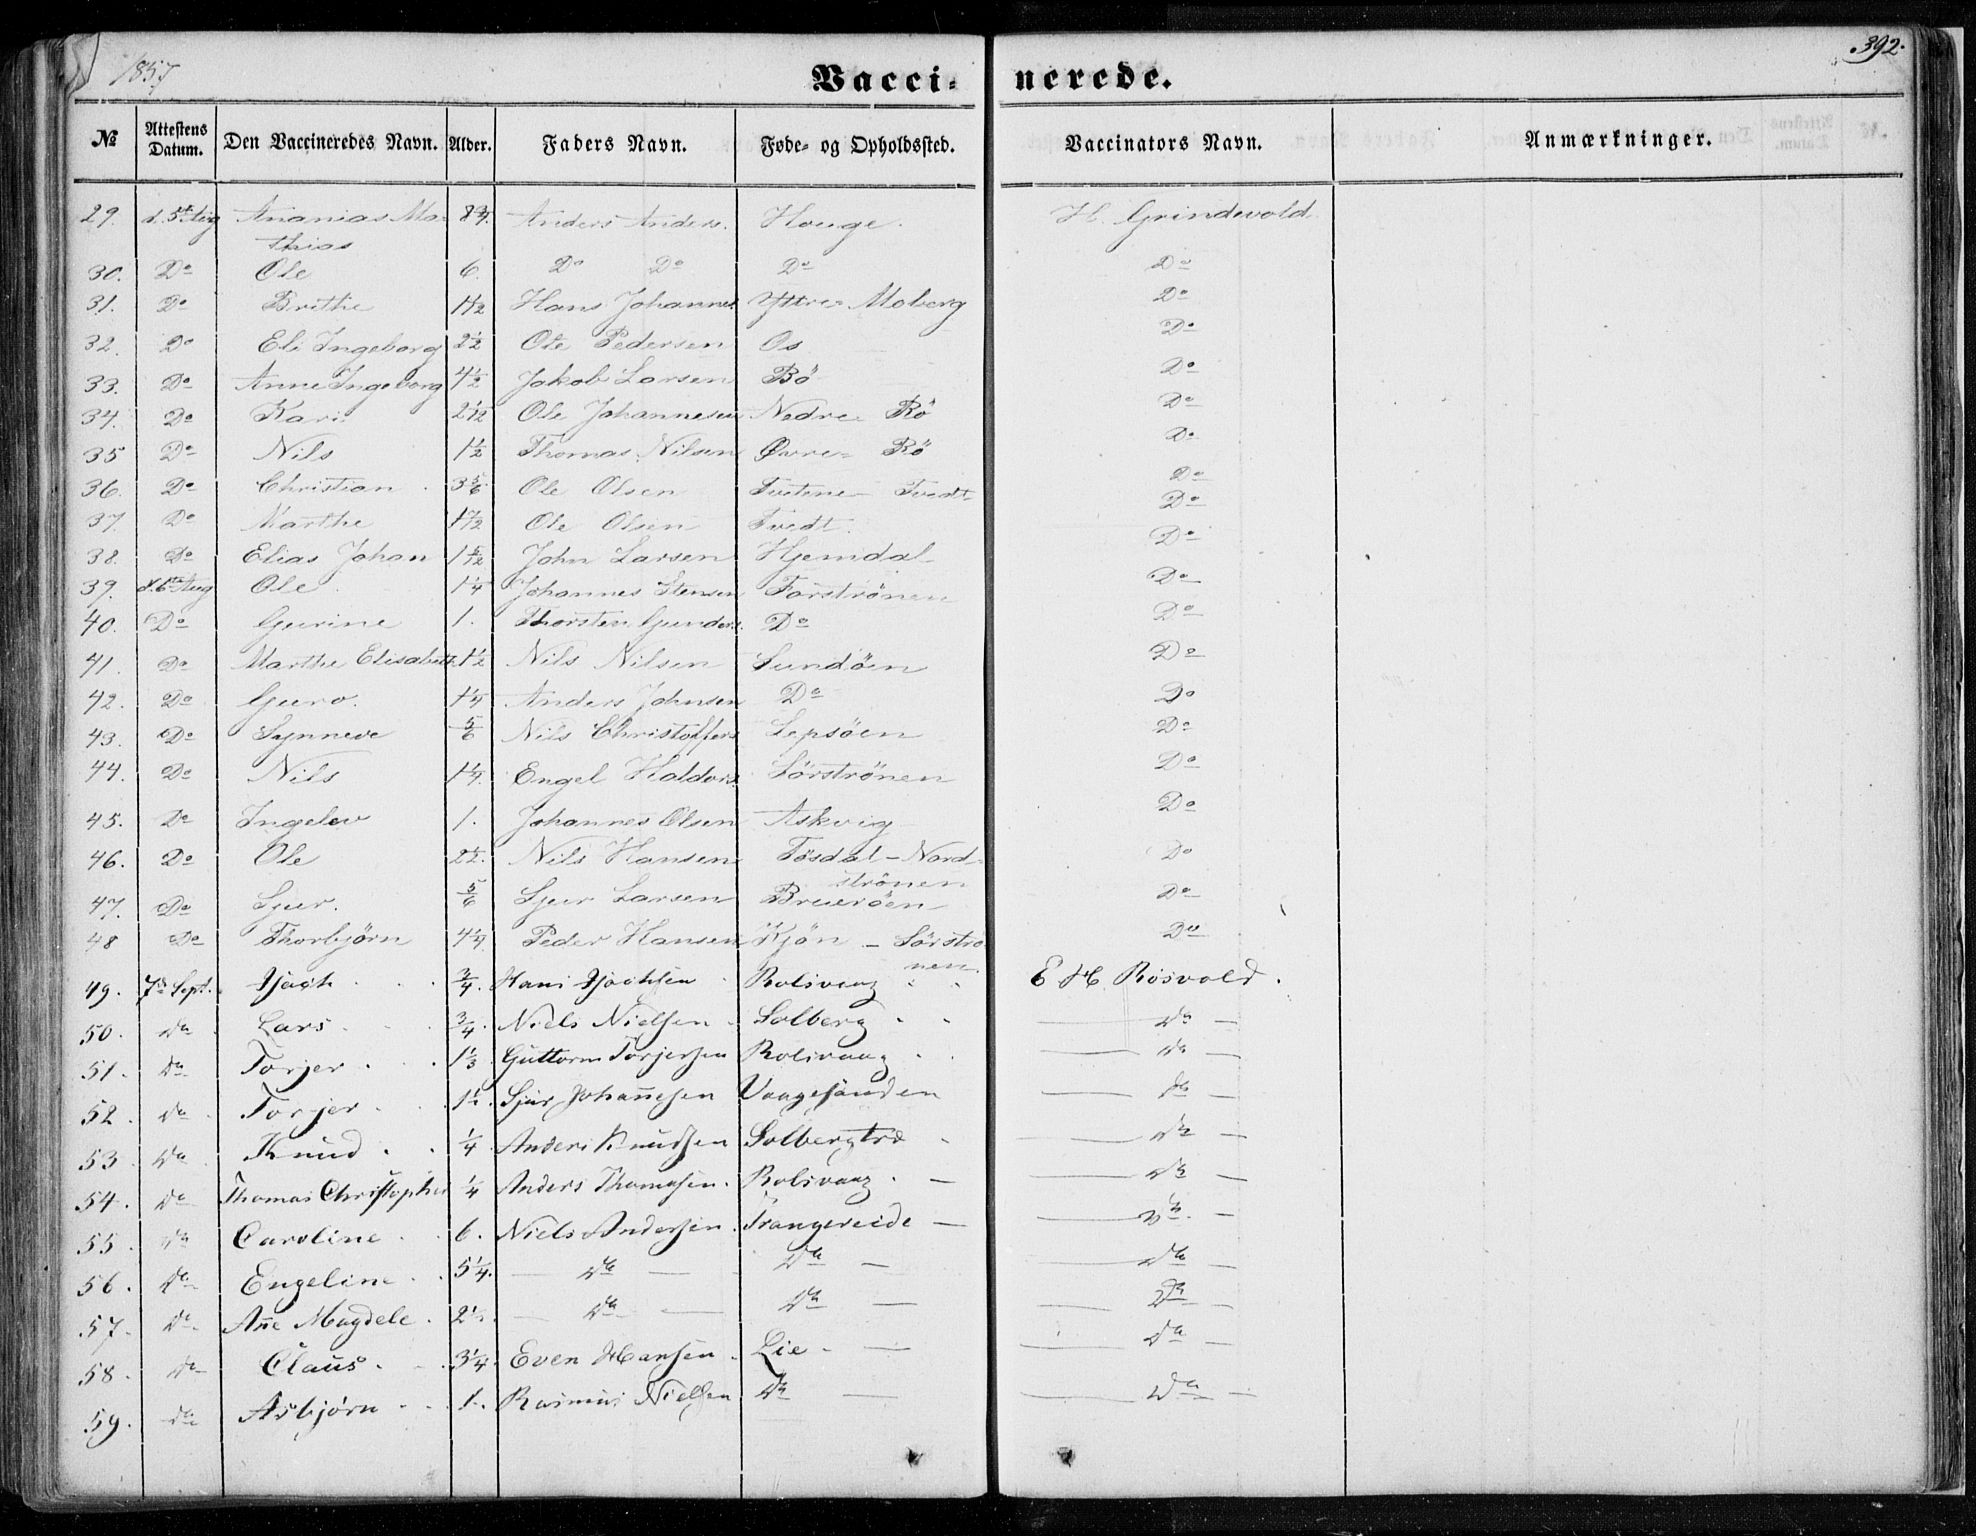 1857
392.
Vaccinerede.
№ Attestens Datum. Den Vaccineredes Navn. Alder. Faders Navn. Føde- og Opholdssted. Vaccinators Navn. Anmærkninger.
29. d. 5te Aug Ananias Ma- Anders Anders. Houge. H. Grindevold
thias
30. Do Ole 6. Do Do Do Do
31. Do Brithe Hans Johannes. Yttre Moberg Do
32. Do Eli Ingeborg 2½ Ole Pedersen Os Do
33. Do Anne Ingeborg 4½ Jakob Larsen Bö Do
34. Do Kari 2 1/12 Ole Johannesen Nedre Rö Do
35 Do Nils 1½ Thomas Nilsen Øvre Rö Do
36. Do Christian 3 5/6 Ole Olsen Tvetene Tvedt Do
37. Do Marthe 1 7/12 Ole Olsen Tvedt. Do
38. Do Elias Johan 1 5/12 John Larsen Hjemdal Do
39. d. 6te Aug Ole 1¼ Johannes Stensen Forströnen Do
40. Do Gurine 1. Thorsten Gunders. Do Do
41. Do Marthe Elisabeth 1½ Nils Nilsen Sundöen Do
42. Do Guro. 1¼ Anders Johnsen Do Do
43. Do Synneve 5/6 Nils Christoffers Lepsöen Do
44. Do Nils 1¼. Engel Haldors. Sörströnen Do
45. Do Ingelev 1. Johannes Olsen Askvig Do
46. Do Ole 2½. Nils Hansen Tösdal - Nord- Do
strönen
47. Do Sjur. 5/6 Sjur Larsen Brueröen Do
48 Do Thorbjørn 4¼ Peder Hansen Kjön - Sörströ- Do
nen.
49. 7de Sept. Hans Rolsvaag E H Rosvold.
50. do Lars ¾. Niels Nielsen Solberg do
51. do Torjer 1⅓ Guttorm Torjersen Rolsvaag do
52. do Torjer Sjur Johannesen Vaagesunden do
53. do Knud ¼ Anders Knudsen Solbergtræ do
54. do Thomas Christopher ¼ Anders Thomasen. Rolsvaag. do
55. do Caroline 6. Niels Andersen. Trangereide do
56. do Engeline 5¼. do do do
57. do Ane Magdele 2½. do do do
58. do Claus 3¼. Even Hansen Lie do
59. do Asbjørn 1. Rasmus Nielsen do do